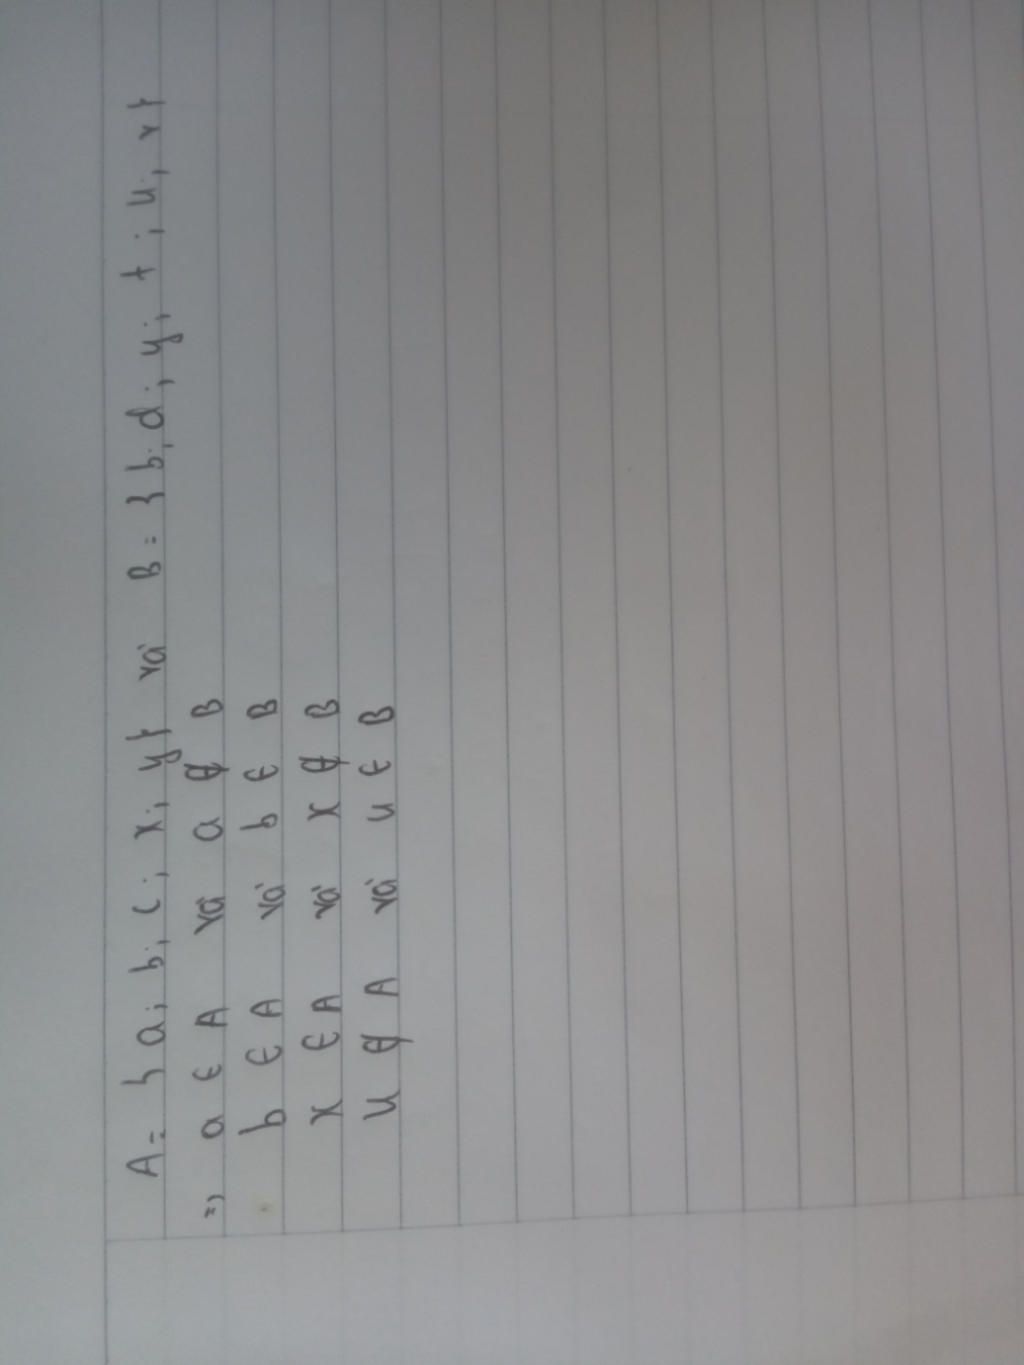 A = { a ; b ; c ; x ; y } và B = { b ; d ; y ; t ; u , v }
=> a ∈ A và a ∉ B
b ∈ A và b ∈ B
x ∈ A và x ∉ B
u ∉ A và u ∈ B